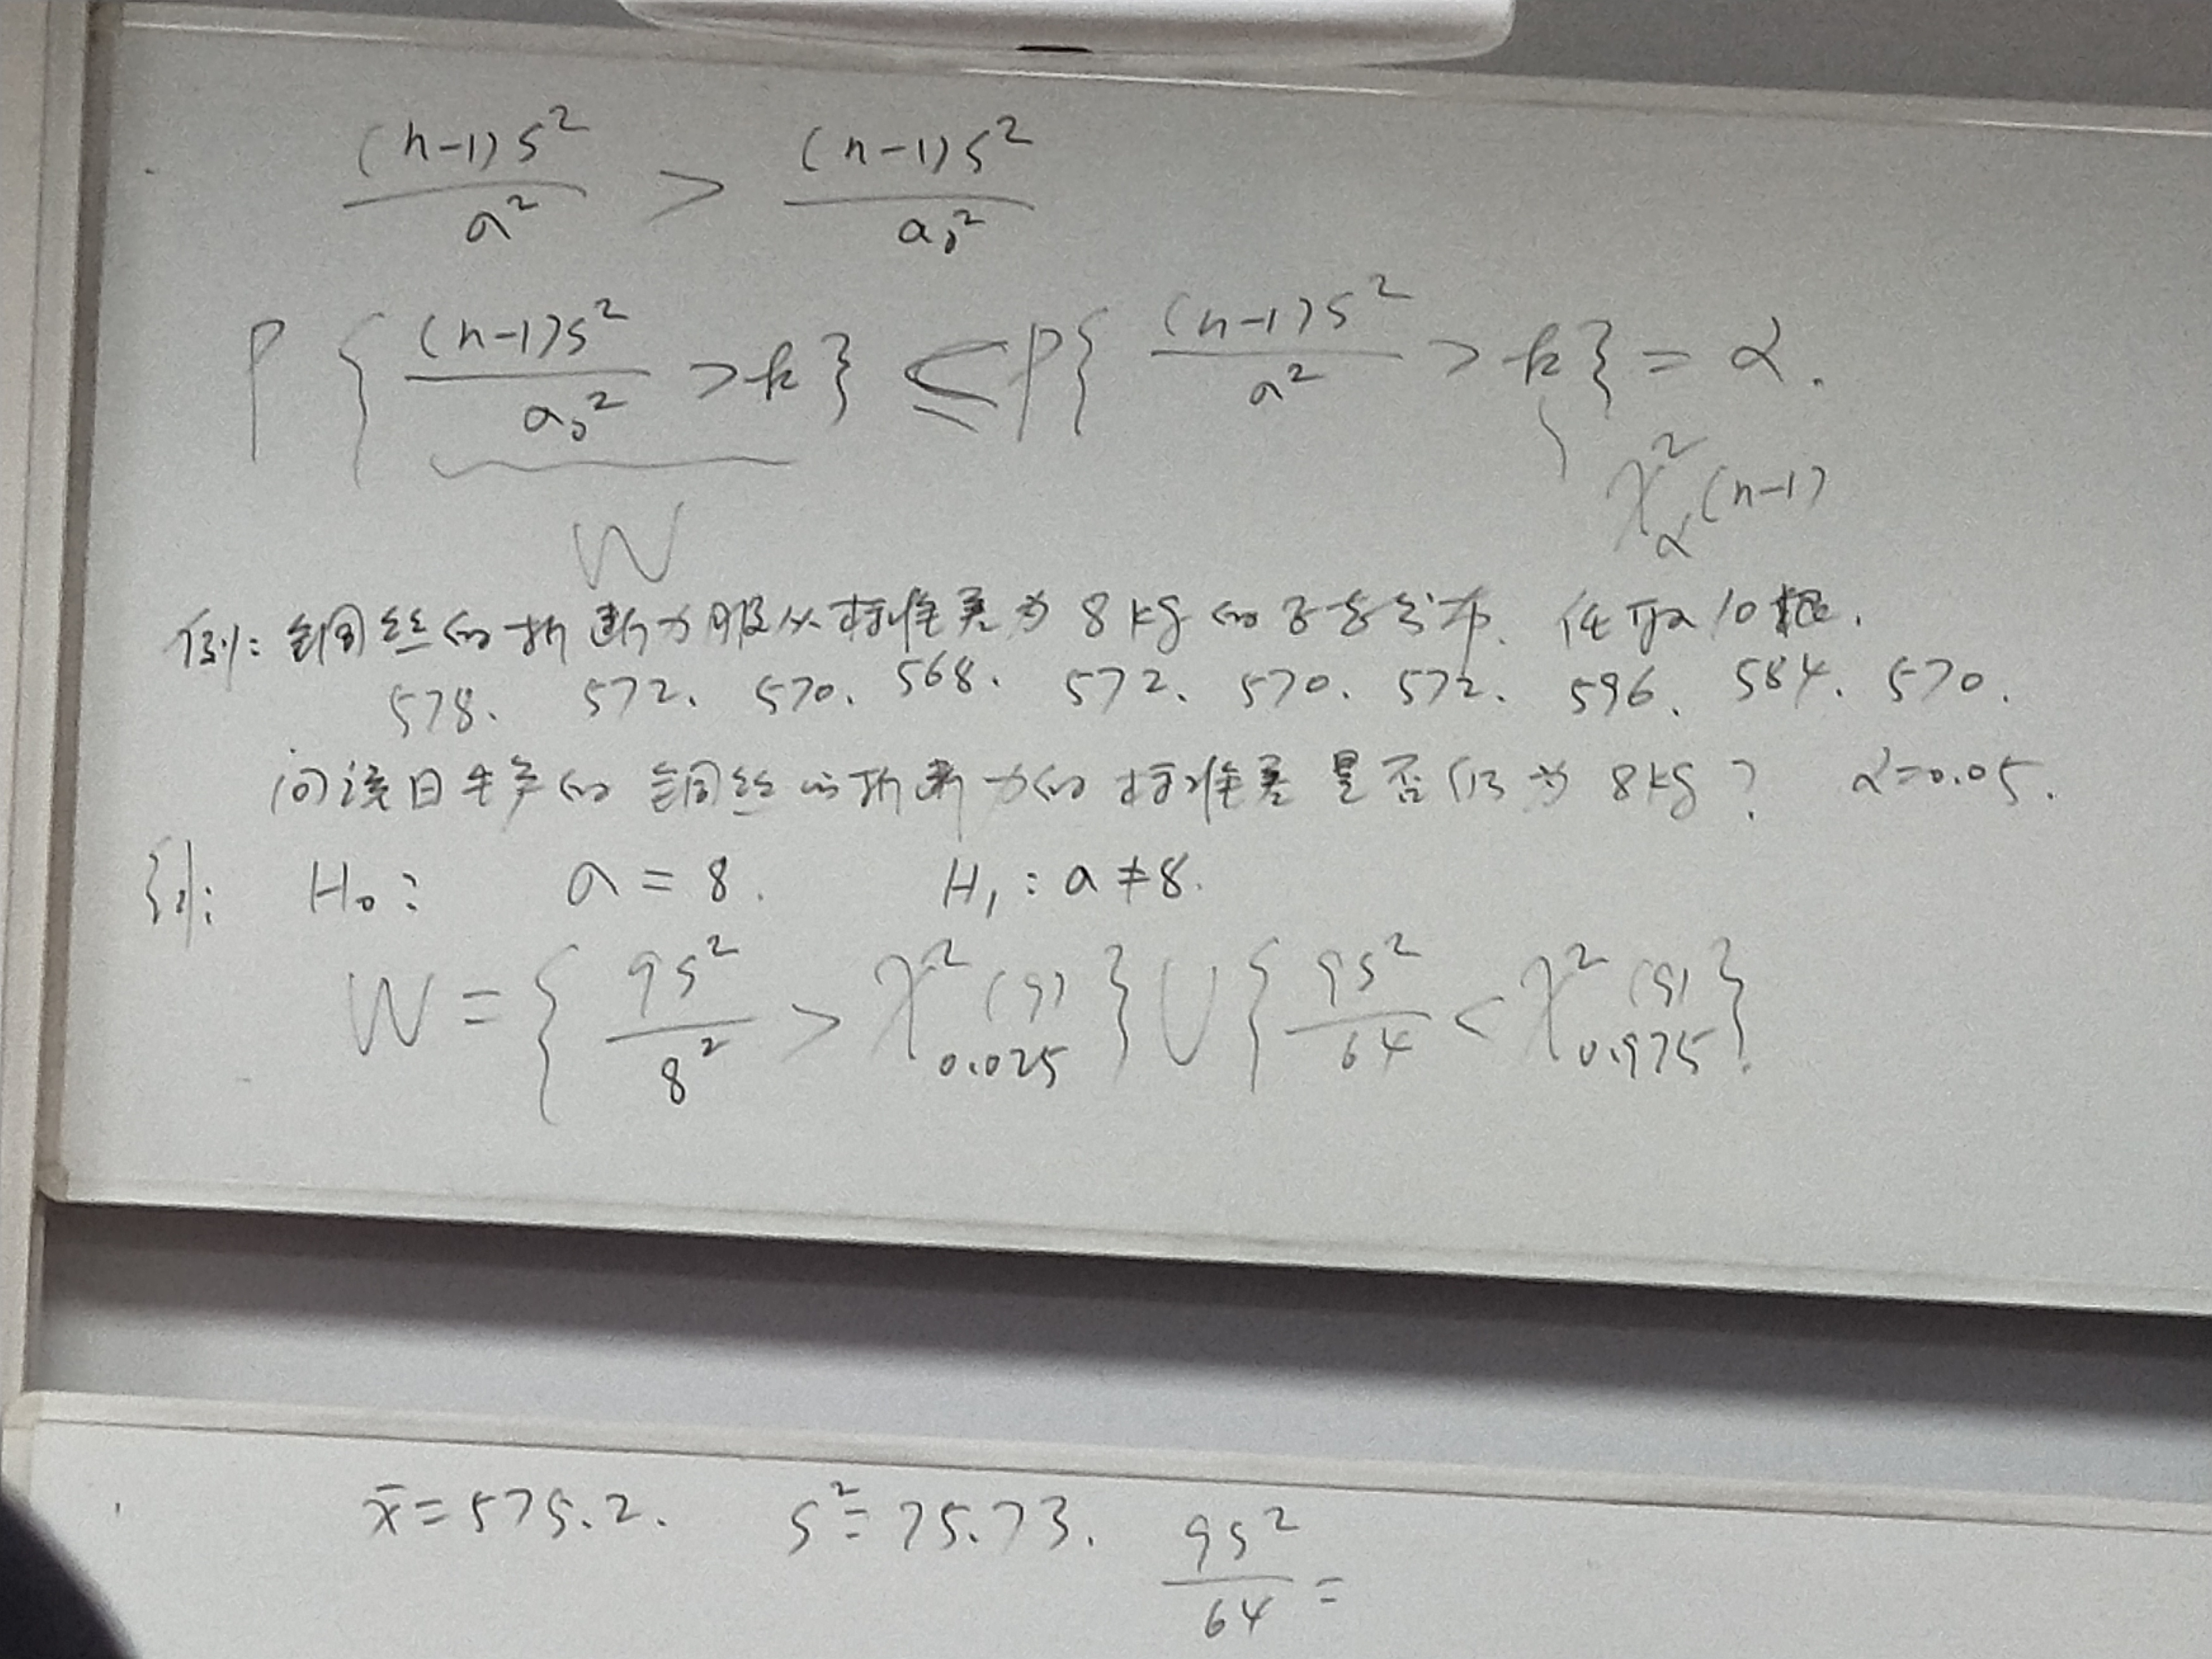 (n-1)S²/a² > (n-1)S²/a₀²
P{(n-1)S²/a₀² > k} ≤ P{(n-1)S²/a² > k} = α.
W
χ²_α(n-1)
例: 铜丝的折断力服从标准差为 8kg 的正态分布. 任取10根.
578. 572. 570. 568. 572. 570. 572. 596. 584. 570.
问该日生产的铜丝的折断力的标准差是否仍为 8kg? α=0.05.
H₀: a = 8. H₁: a ≠ 8.
W = {9S²/8² > χ²_0.025(9)} ∪ {9S²/64 < χ²_0.975(9)}
x̄ = 575.2. S² = 75.73. 9S²/64 =